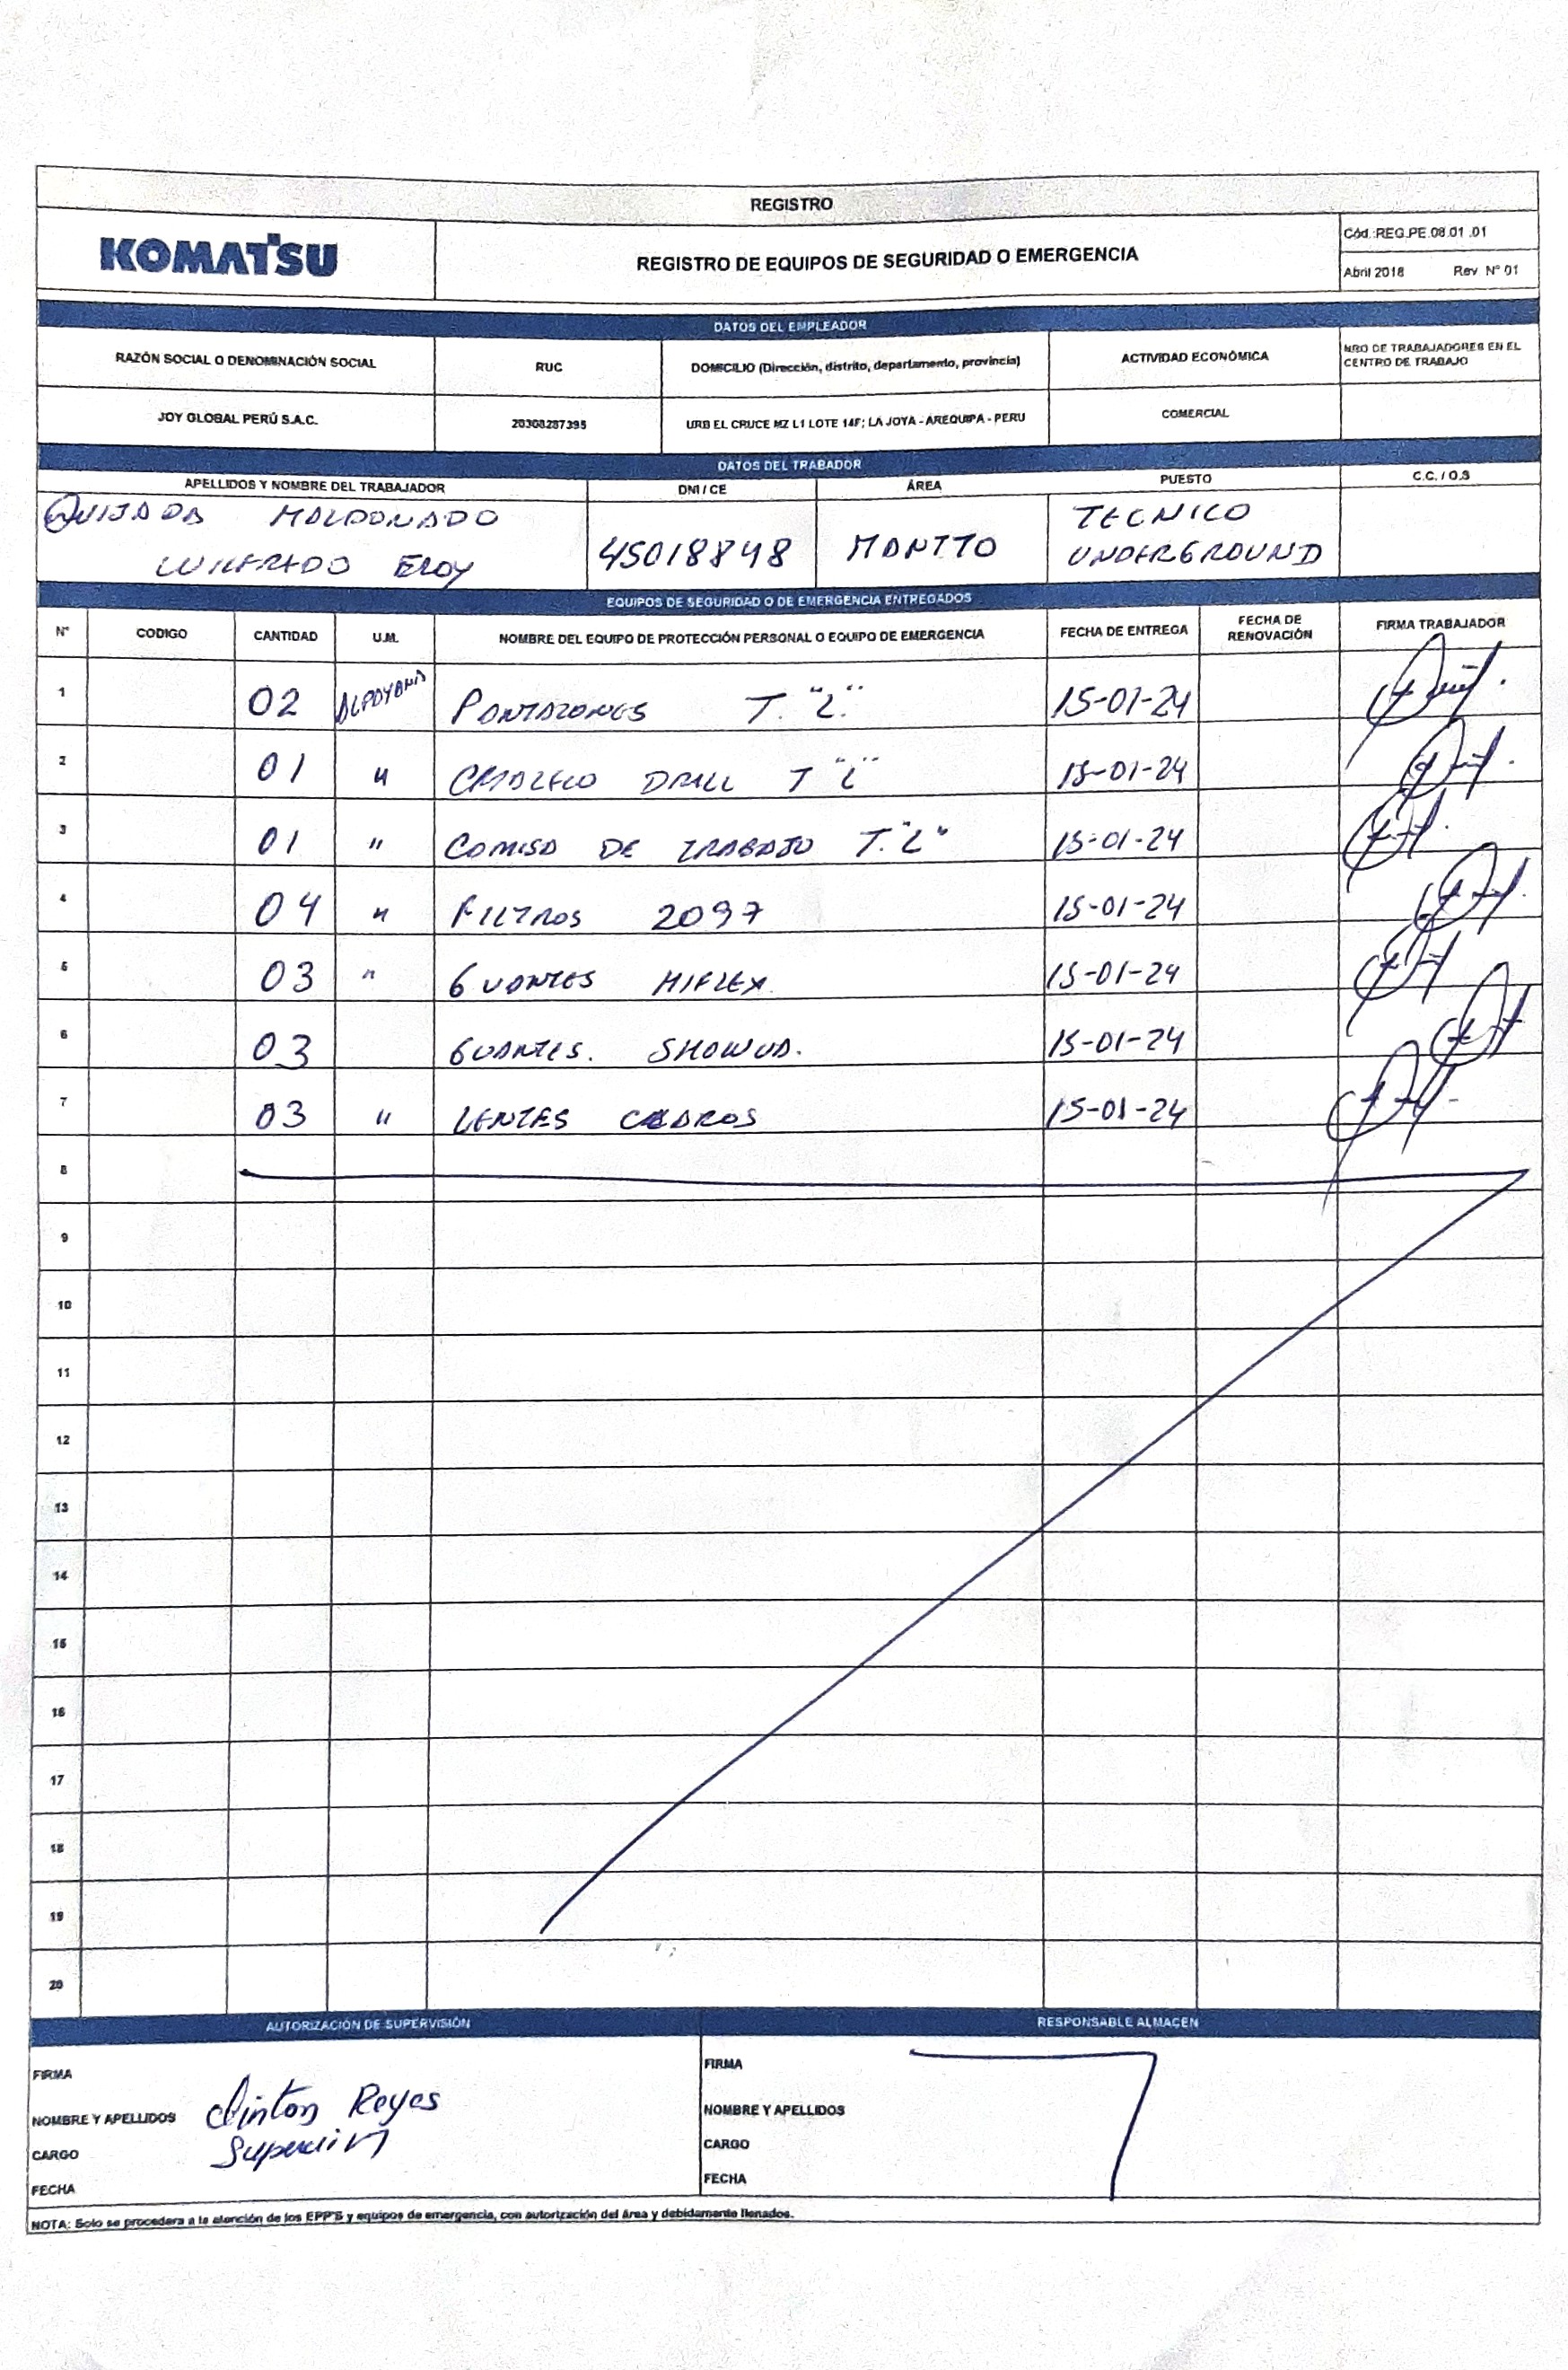 REGISTRO
KOMATSU
REGISTRO DE EQUIPOS DE SEGURIDAD O EMERGENCIA
Cód.:REG.PE.08.01 .01
Abril 2018 Rev. N° 01
DATOS DEL EMPLEADOR
RAZÓN SOCIAL O DENOMINACIÓN SOCIAL RUC DOMICILIO (Dirección, distrito, departamento, provincia) ACTIVIDAD ECONÓMICA NRO DE TRABAJADORES EN EL
CENTRO DE TRABAJO
JOY GLOBAL PERÚ S.A.C. 20308287395 URB EL CRUCE MZ L1 LOTE 14F; LA JOYA - AREQUIPA - PERU COMERCIAL
DATOS DEL TRABADOR
APELLIDOS Y NOMBRE DEL TRABAJADOR DNI / CE ÁREA PUESTO C.C. / O.S
QUIJADA MALDONADO
WILFREDO ELOY 45018848 MANTTO TECNICO
UNDERGROUND
EQUIPOS DE SEGURIDAD O DE EMERGENCIA ENTREGADOS
N° CODIGO CANTIDAD U.M. NOMBRE DEL EQUIPO DE PROTECCIÓN PERSONAL O EQUIPO DE EMERGENCIA FECHA DE ENTREGA FECHA DE
RENOVACIÓN FIRMA TRABAJADOR
1 02 ALPAYANA PANTALONES T. "L" 15-01-24
2 01 " DRILL T "L" 15-01-24
3 01 " CAMISA DE TRABAJO T. "L" 15-01-24
4 04 " FILTROS 2097 15-01-24
5 03 " GUANTES HIFLEX. 15-01-24
6 03 GUANTES. SHOWUA. 15-01-24
7 03 " LENTES 15-01-24
8
9
10
11
12
13
14
15
16
17
18
19
20
AUTORIZACIÓN DE SUPERVISIÓN RESPONSABLE ALMACEN
FIRMA FIRMA
NOMBRE Y APELLIDOS Clinton Reyes NOMBRE Y APELLIDOS
CARGO CARGO
FECHA FECHA
NOTA: Solo se procedera a la atención de los EPP'S y equipos de emergencia, con autorización del área y debidamente llenados.